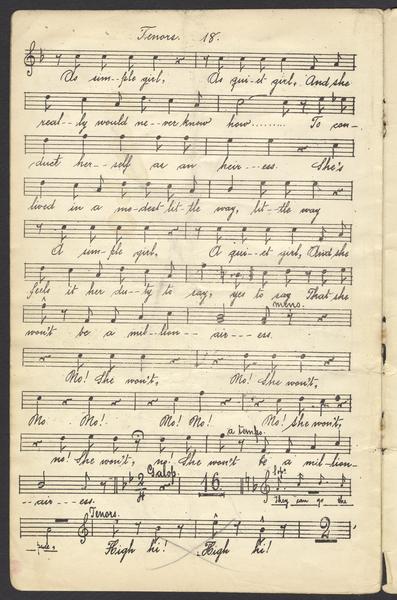 Tenors. 18.
As sim--ple girl, As qui-et girl, And she
real--ly would ne--ver know how......... To con-
duct her--self as an heir---ess. She's
lived in a mo-dest lit-tle way, lit-tle way
A sim-ple girl, A qui--et girl, And she
feels it her du--ty to say, yes to say That she
meno.
won't be a mil-lion--air---ess.
No! She won't, No! She won't,
No No! No! No! No! She won't,
a tempo.
no! She won't, no! She won't be a mil-lion-
Galop. Sop:
--air---ess. ff 16. They can go the
Tenors.
High hi! High hi! 2